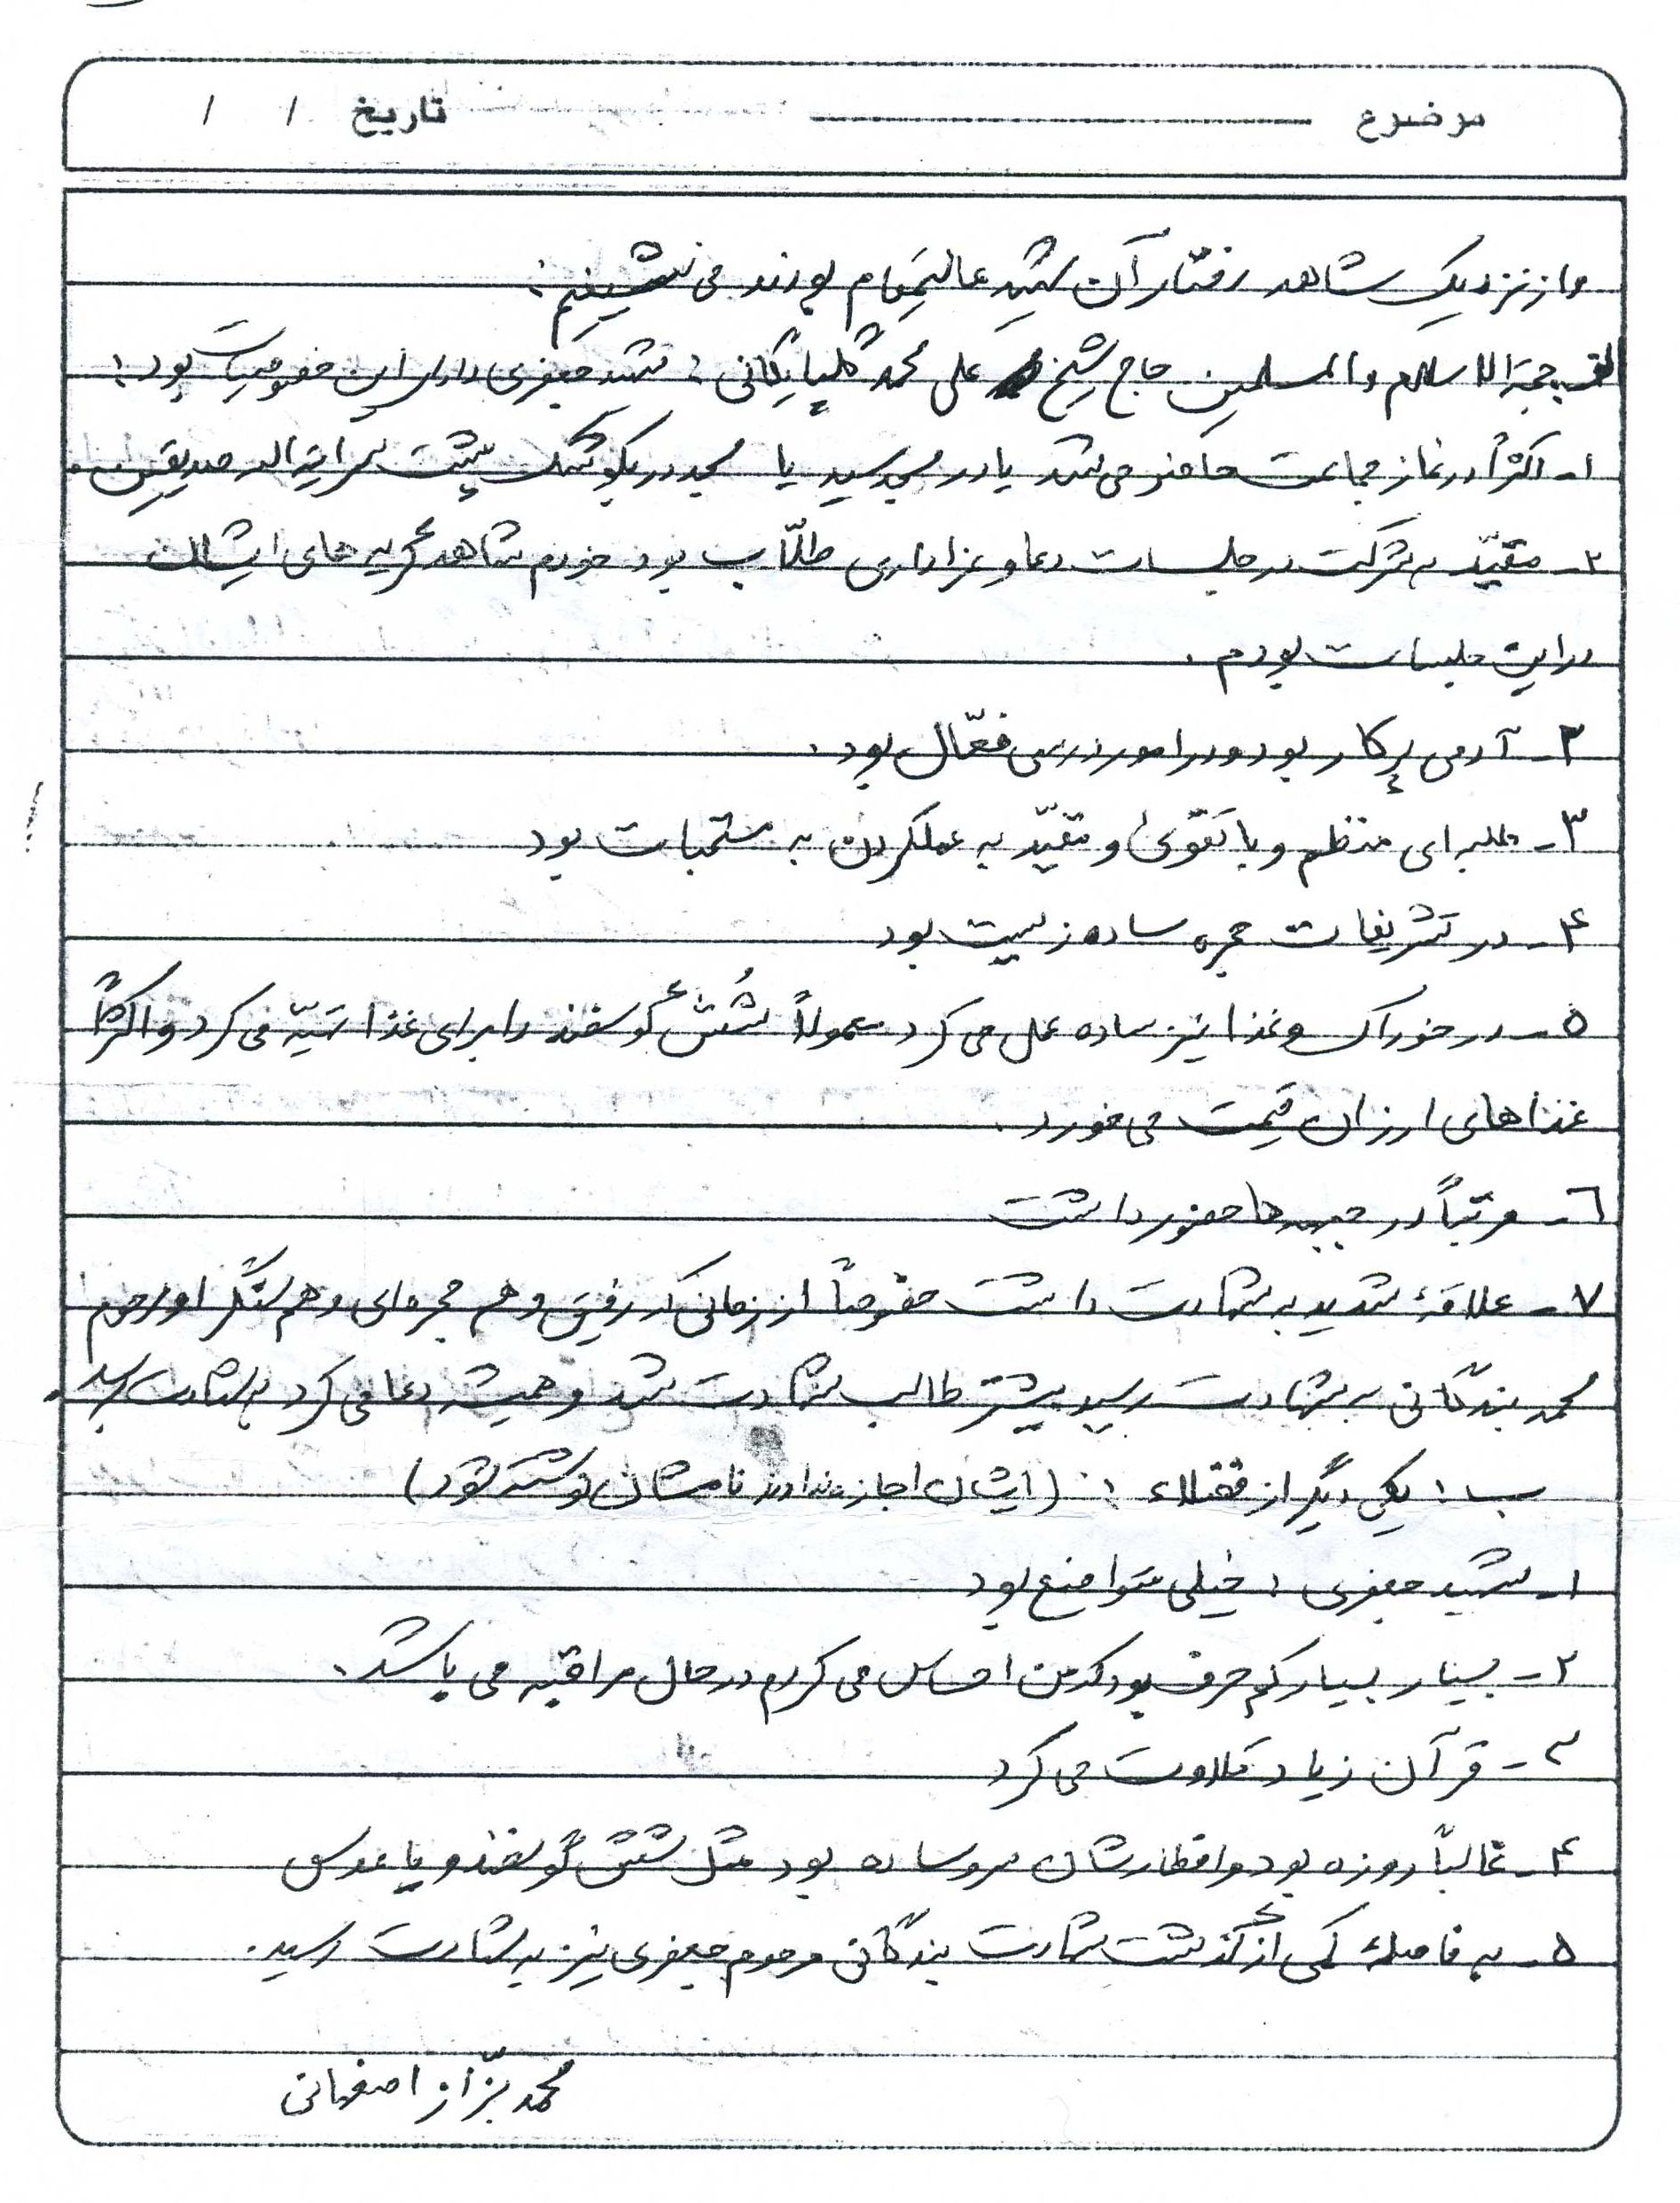 موضوع تاریخ / /
و از نزدیک شاهد رفتار آن شهید عالیمقام بودند می نشینیم:
الف: حجة الاسلام والمسلمین حاج شیخ علی محمد گلپایگانی: شهید جعفری دارای این خصوصیات بود:
۱- اکثراً در نماز جماعت حاضر می شد یا در مسجد سید یا مسجد در بکوشک پشت سر آیة الله صدیقین.
۲- مقیّد به شرکت در جلسات دعا و عزاداری طلّاب بود خودم شاهد گریه های ایشان
در این جلسات بودم.
۳- آدمی پرکار بود و در امور درسی فعّال بود.
۳- طلبه ای منظم و با تقوی و مقیّد به عملکردن به مستحبات بود
۴- در تشریفات حجره ساده زیست بود
۵- در خوراک و غذا نیز ساده عمل می کرد معمولاً شُش گوسفند را برای غذا تهیّه می کرد و اکثراً
غذاهای ارزان قیمت می خورد.
٦- مرتّباً در جبهه ها حضور داشت
۷- علاقهٔ شدید به شهادت داشت خصوصاً از زمانی که رفیق و هم حجره ای و هم سنگر او مرحوم
محمد بندگانی به شهادت رسید بیشتر طالب شهادت شد و همیشه دعا می کرد به شهادت برسد.
ب: یکی دیگر از فضلاء: (ایشان اجازه ندادند نامشان نوشته شود)
۱- شهید جعفری: خیلی متواضع بود
۲- بسیار بسیار کم حرف بود که من احساس می کردم در حال مراقبه می باشد.
۳- قرآن زیاد تلاوت می کرد
۴- غالباً روزه بود و افطارشان سرو ساده بود مثل شش گوسفند و یا عدس
۵- به فاصلهٔ کمی از گذشت شهادت بندگانی مرحوم جعفری نیز به شهادت رسید.
محمد بزّاز اصفهانی